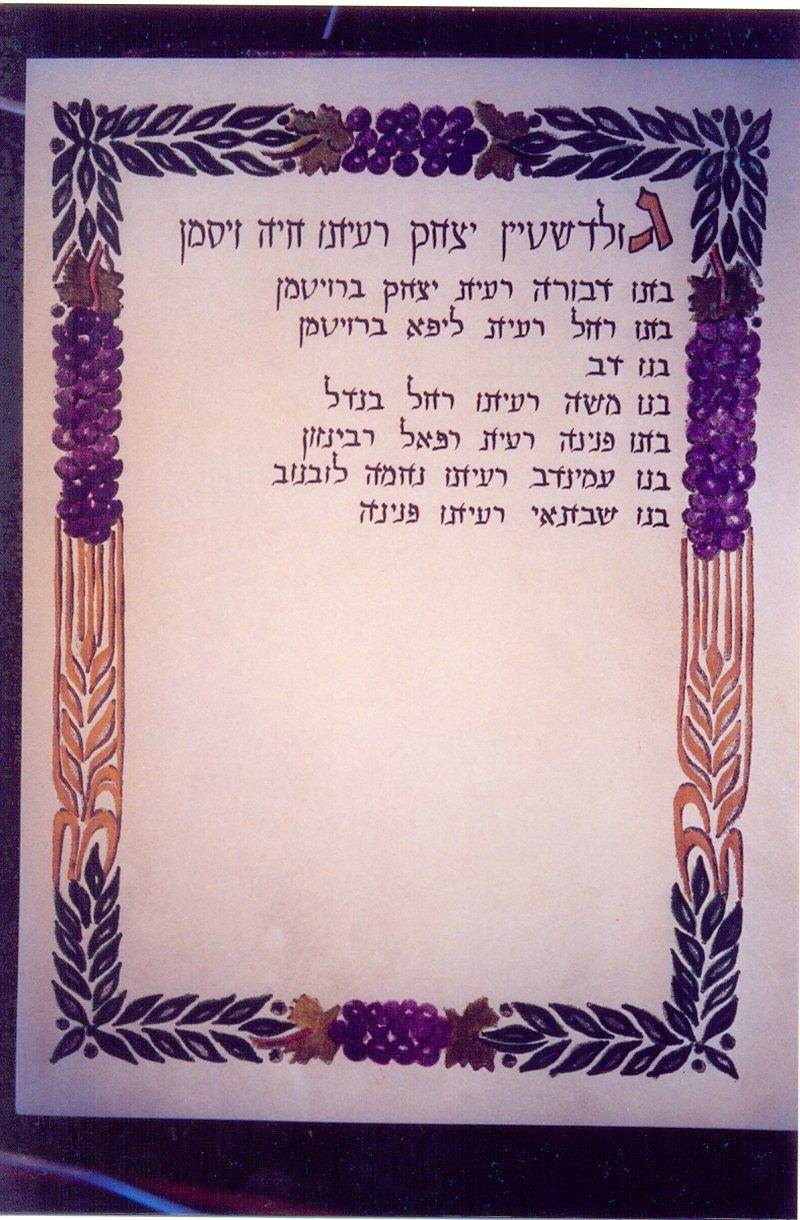 גולדשטיין יצחק רעיתו חיה זיסמן
בתו דבורה רעית יצחק ברויטמן
בתו רחל רעית ליפא ברויטמן
בנו דב
בנו משה רעיתו רחל בנדל
בתו פנינה רעית רפאל רבינזון
בנו עמינדב רעיתו נחמה לובנוב
בנו שבתאי רעיתו פנינה